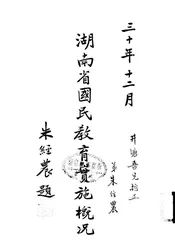 三十年十二月
井塘吾兄指正
弟朱經農
湖南省國民教育實施概況
朱經農題